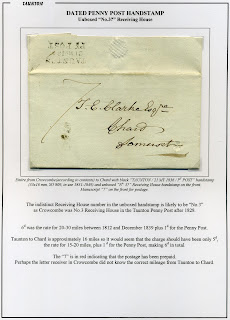 TAUNTON
DATED PENNY POST HANDSTAMP
Unboxed "No.3" Receiving House
T.E. Clarke Esqre
Chard
Somerset
Entire from Crowcombe
"7" on the front for postage
The indistinct Receiving House number in the unboxed handstamp is likely to be "No.3"
as Crowcombe was No.3 Receiving House in the Taunton Penny Post after 1829.
6d was the rate for 20-30 miles between 1812 and December 1839 plus 1d for the Penny Post.
Taunton to Chard is approximately 16 miles so it would seem that the charge should have been only 5d,
the rate for 15-20 miles, plus 1d for the Penny Post, making 6d in total.
The "7" is in red indicating that the postage has been prepaid.
Perhaps the letter receiver in Crowcombe did not know the correct mileage from Taunton to Chard.